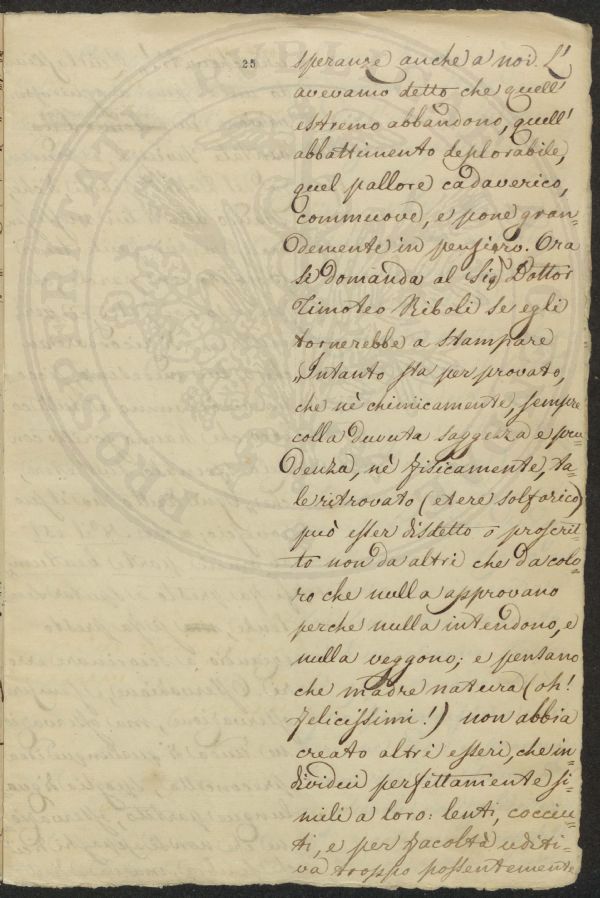 25
speranze anche a noi. L'
avevamo detto che quell'
estremo abbandono, quell'
abbattimento deplorabile,
quel pallore cadaverico,
commuove, e pone gran=
demente in pensiero. Ora
si domanda al Sig.r Dottor
Timoteo Riboli se egli
tornerebbe a stampare
„Intanto sta per provato,
che nè chimicamente, sempre
colla dovuta saggezza e pru=
denza, nè fisicamente, ta=
le ritrovato (etere solforico)
può esser disdetto o proscrit=
to non da altri che da colo=
ro che nulla approvano
perche nulla intendono, e
nulla veggono; e pensano
che madre natura (oh!
felicissimi!) non abbia
creato altri esseri, che in=
dividui perfettamente si=
mili a loro: lenti, cocciu=
ti, e per facoltà uditi=
va troppo possentemente
PROSPERITATI PUBL